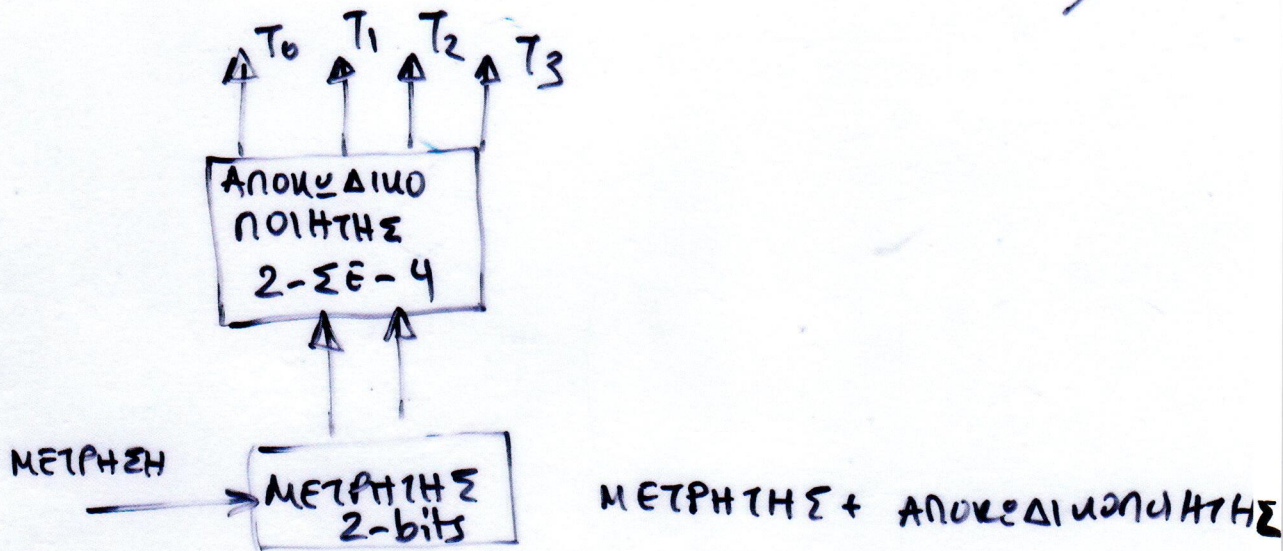 T0 T1 T2 T3
ΑΠΟΚΩΔΙΚΟ
ΠΟΙΗΤΗΣ
2-ΣΕ-4
ΜΕΤΡΗΣΗ
ΜΕΤΡΗΤΗΣ
2-bits
ΜΕΤΡΗΤΗΣ + ΑΠΟΚΩΔΙΚΟΠΟΙΗΤΗΣ